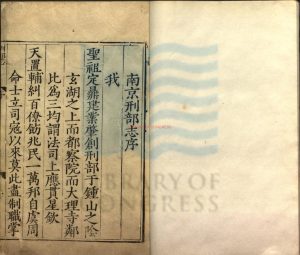 南京刑部志序
我
聖祖定鼎建業肇創刑部于鍾山之陰
玄湖之上而都察院而大理寺鄰
比為三均謂法司上應貫星欽
天置輔糾百僚勖兆民一萬邦自虞周
命士立司寇以來莫此盡制職掌
LIBRARY OF
CONGRESS